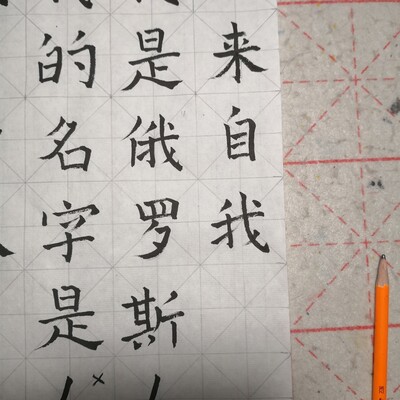 的名字是
是俄罗斯
来自我